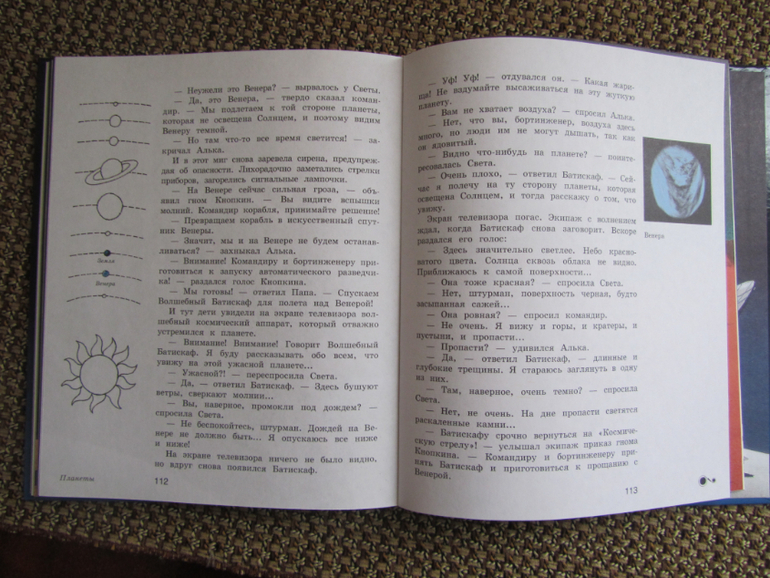 — Неужели это Венера? — вырвалось у Светы.
— Да, это Венера, — твердо сказал коман-
дир. — Мы подлетаем к той стороне планеты,
которая не освещена Солнцем, и поэтому видим
Венеру темной.
— Но там что-то все время светится! — за-
кричал Алька.
И в этот миг снова заревела сирена, предупреж-
дая об опасности. Лихорадочно заметались стрелки
приборов, загорелись сигнальные лампочки.
— На Венере сейчас сильная гроза, — объ-
явил гном Кнопкин. — Вы видите вспышки
молний. Командир корабля, принимайте решение!
— Превращаем корабль в искусственный спут-
ник Венеры.
— Значит, мы и на Венере не будем останав-
ливаться? — захныкал Алька.
— Внимание! Командиру и бортинженеру при-
готовиться к запуску автоматического разведчи-
ка! — раздался голос Кнопкина.
— Мы готовы! — ответил Папа. — Спускаем
Волшебный Батискаф для полета над Венерой!
И тут дети увидели на экране телевизора вол-
шебный космический аппарат, который отважно
устремился к планете.
— Внимание! Внимание! Говорит Волшебный
Батискаф. Я буду рассказывать обо всем, что
увижу на этой ужасной планете...
— Ужасной?! — переспросила Света.
— Да, — ответил Батискаф. — Здесь бушуют
ветры, сверкают молнии...
— Вы, наверное, промокли под дождем? —
спросила Света.
— Не беспокойтесь, штурман. Дождей на Ве-
нере не должно быть... Я опускаюсь все ниже
и ниже!
На экране телевизора ничего не было видно,
но вдруг снова появился Батискаф.
Земля
Венера
Планеты
112
— Уф! Уф! — отдувался он. — Какая жари-
ща! Не вздумайте высаживаться на эту жуткую
планету.
— Вам не хватает воздуха? — спросил Алька.
— Нет, что вы, бортинженер, воздуха здесь
много, но люди им не могут дышать, так как
он ядовитый.
— Видно что-нибудь на планете? — поинте-
ресовалась Света.
— Очень плохо, — ответил Батискаф. — Сей-
час я полечу на ту сторону планеты, которая
освещена Солнцем, и тогда расскажу о том, что
увижу.
Экран телевизора погас. Экипаж с волнением
ждал, когда Батискаф снова заговорит. Вскоре
раздался его голос:
— Здесь значительно светлее. Небо красно-
ватого цвета. Солнца сквозь облака не видно.
Приближаюсь к самой поверхности...
— Она тоже красная? — спросила Света.
— Нет, штурман, поверхность черная, будто
засыпанная сажей...
— Она ровная? — спросил командир.
— Не очень. Я вижу и горы, и кратеры, и
пустыни, и пропасти...
— Пропасти? — удивился Алька.
— Да, — ответил Батискаф, — длинные и
глубокие трещины. Я стараюсь заглянуть в одну
из них.
— Там, наверное, очень темно? — спросила
Света.
— Нет, не очень. На дне пропасти светятся
раскаленные камни...
— Батискафу срочно вернуться на «Космиче-
скую стрелу»! — услышал экипаж приказ гнома
Кнопкина. — Командиру и бортинженеру при-
нять Батискаф и приготовиться к прощанию с
Венерой.
Венера
113